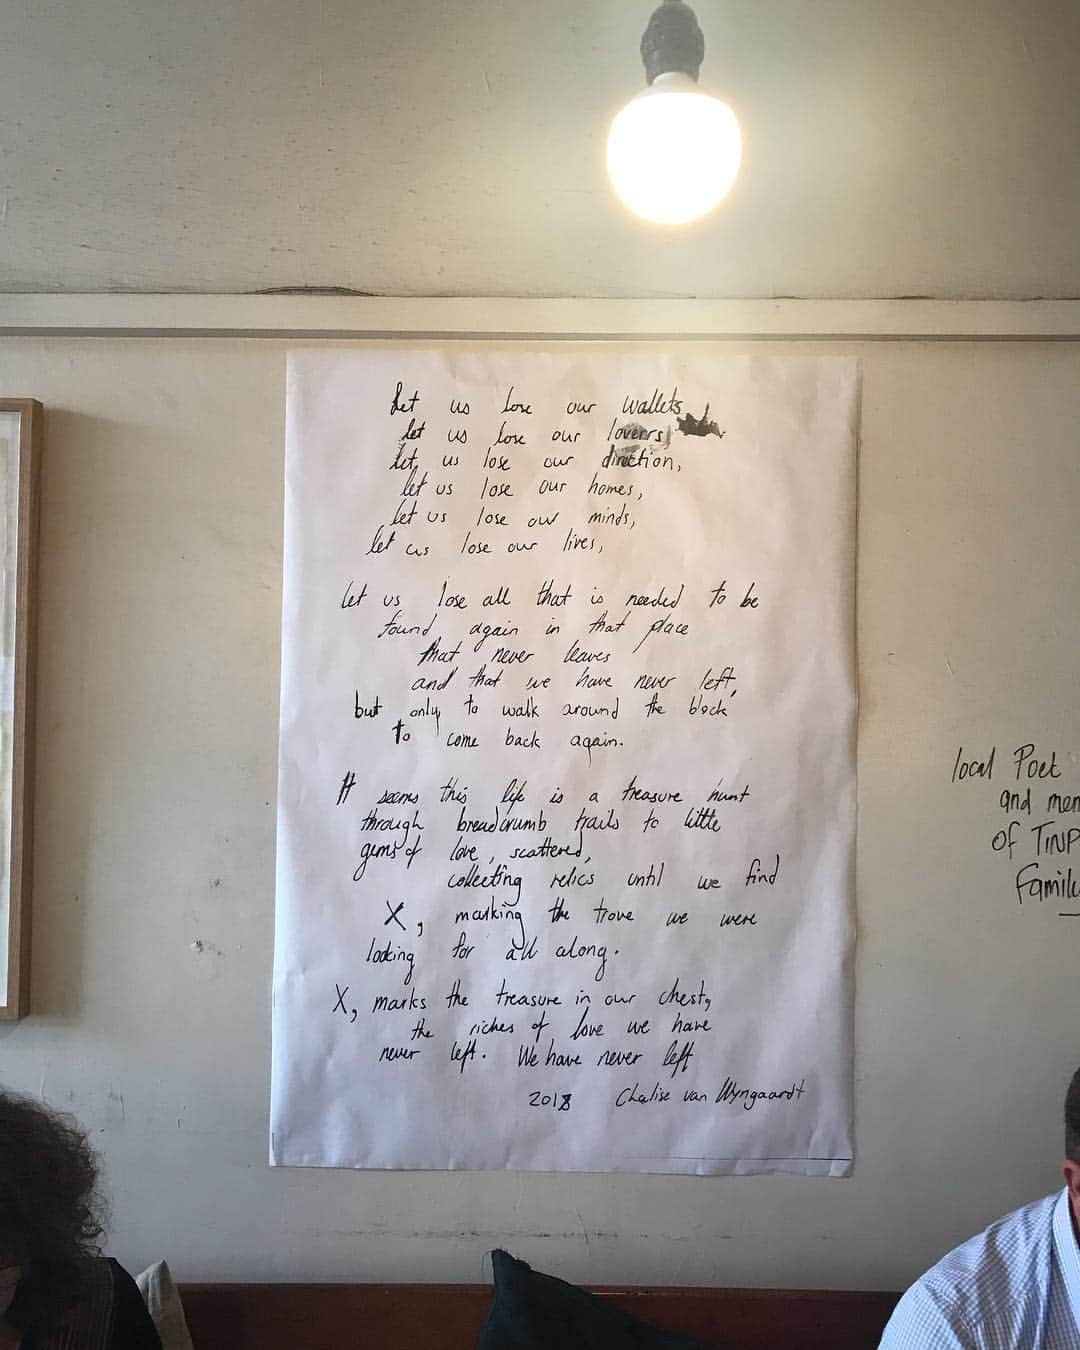 Let us lose our wallets
let us lose our loverrs,
let us lose our direction,
let us lose our homes,
let us lose our minds,
let us lose our lives,
let us lose all that is needed to be
found again in that place
that never leaves
and that we have never left,
but only to walk around the block
to come back again.
It seems this life is a treasure hunt
through breadcrumb trails to little
gems of love, scattered,
collecting relics until we find
X, marking the trove we were
looking for all along.
X, marks the treasure in our chest,
the riches of love we have
never left. We have never left
2018 Chalise van Wyngaardt
local Poet
and mem
of TINP
Family